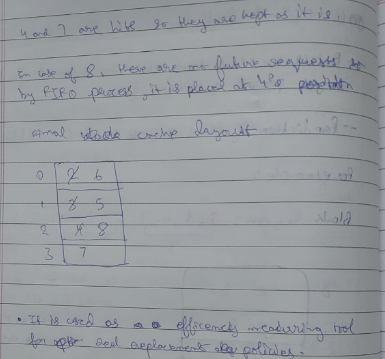 4 and 7 are hits so they are kept as it is.
In case of 8, there are no future requests so
by FIFO process, it is placed at 4's position
final cache layout
0 2 6
1 3 5
2 4 8
3 7
• It is used as a efficiency measuring tool
for and replacement policies.